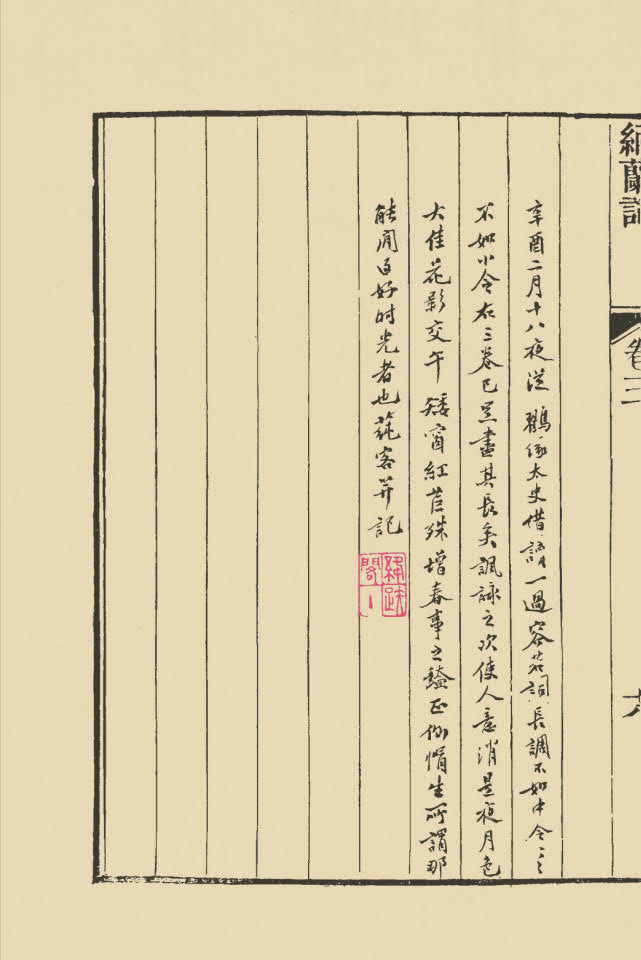 納蘭詞
卷三
辛酉二月十八夜從太史借讀一過容若詞長調不如中令
不如小令右三卷已足盡其長矣諷詠之次使人意消是夜月色
大佳花影交午矮窗紅苣殊增春事之豔正生所謂那
能閒好时光者也蒓客并記
絳趺閣